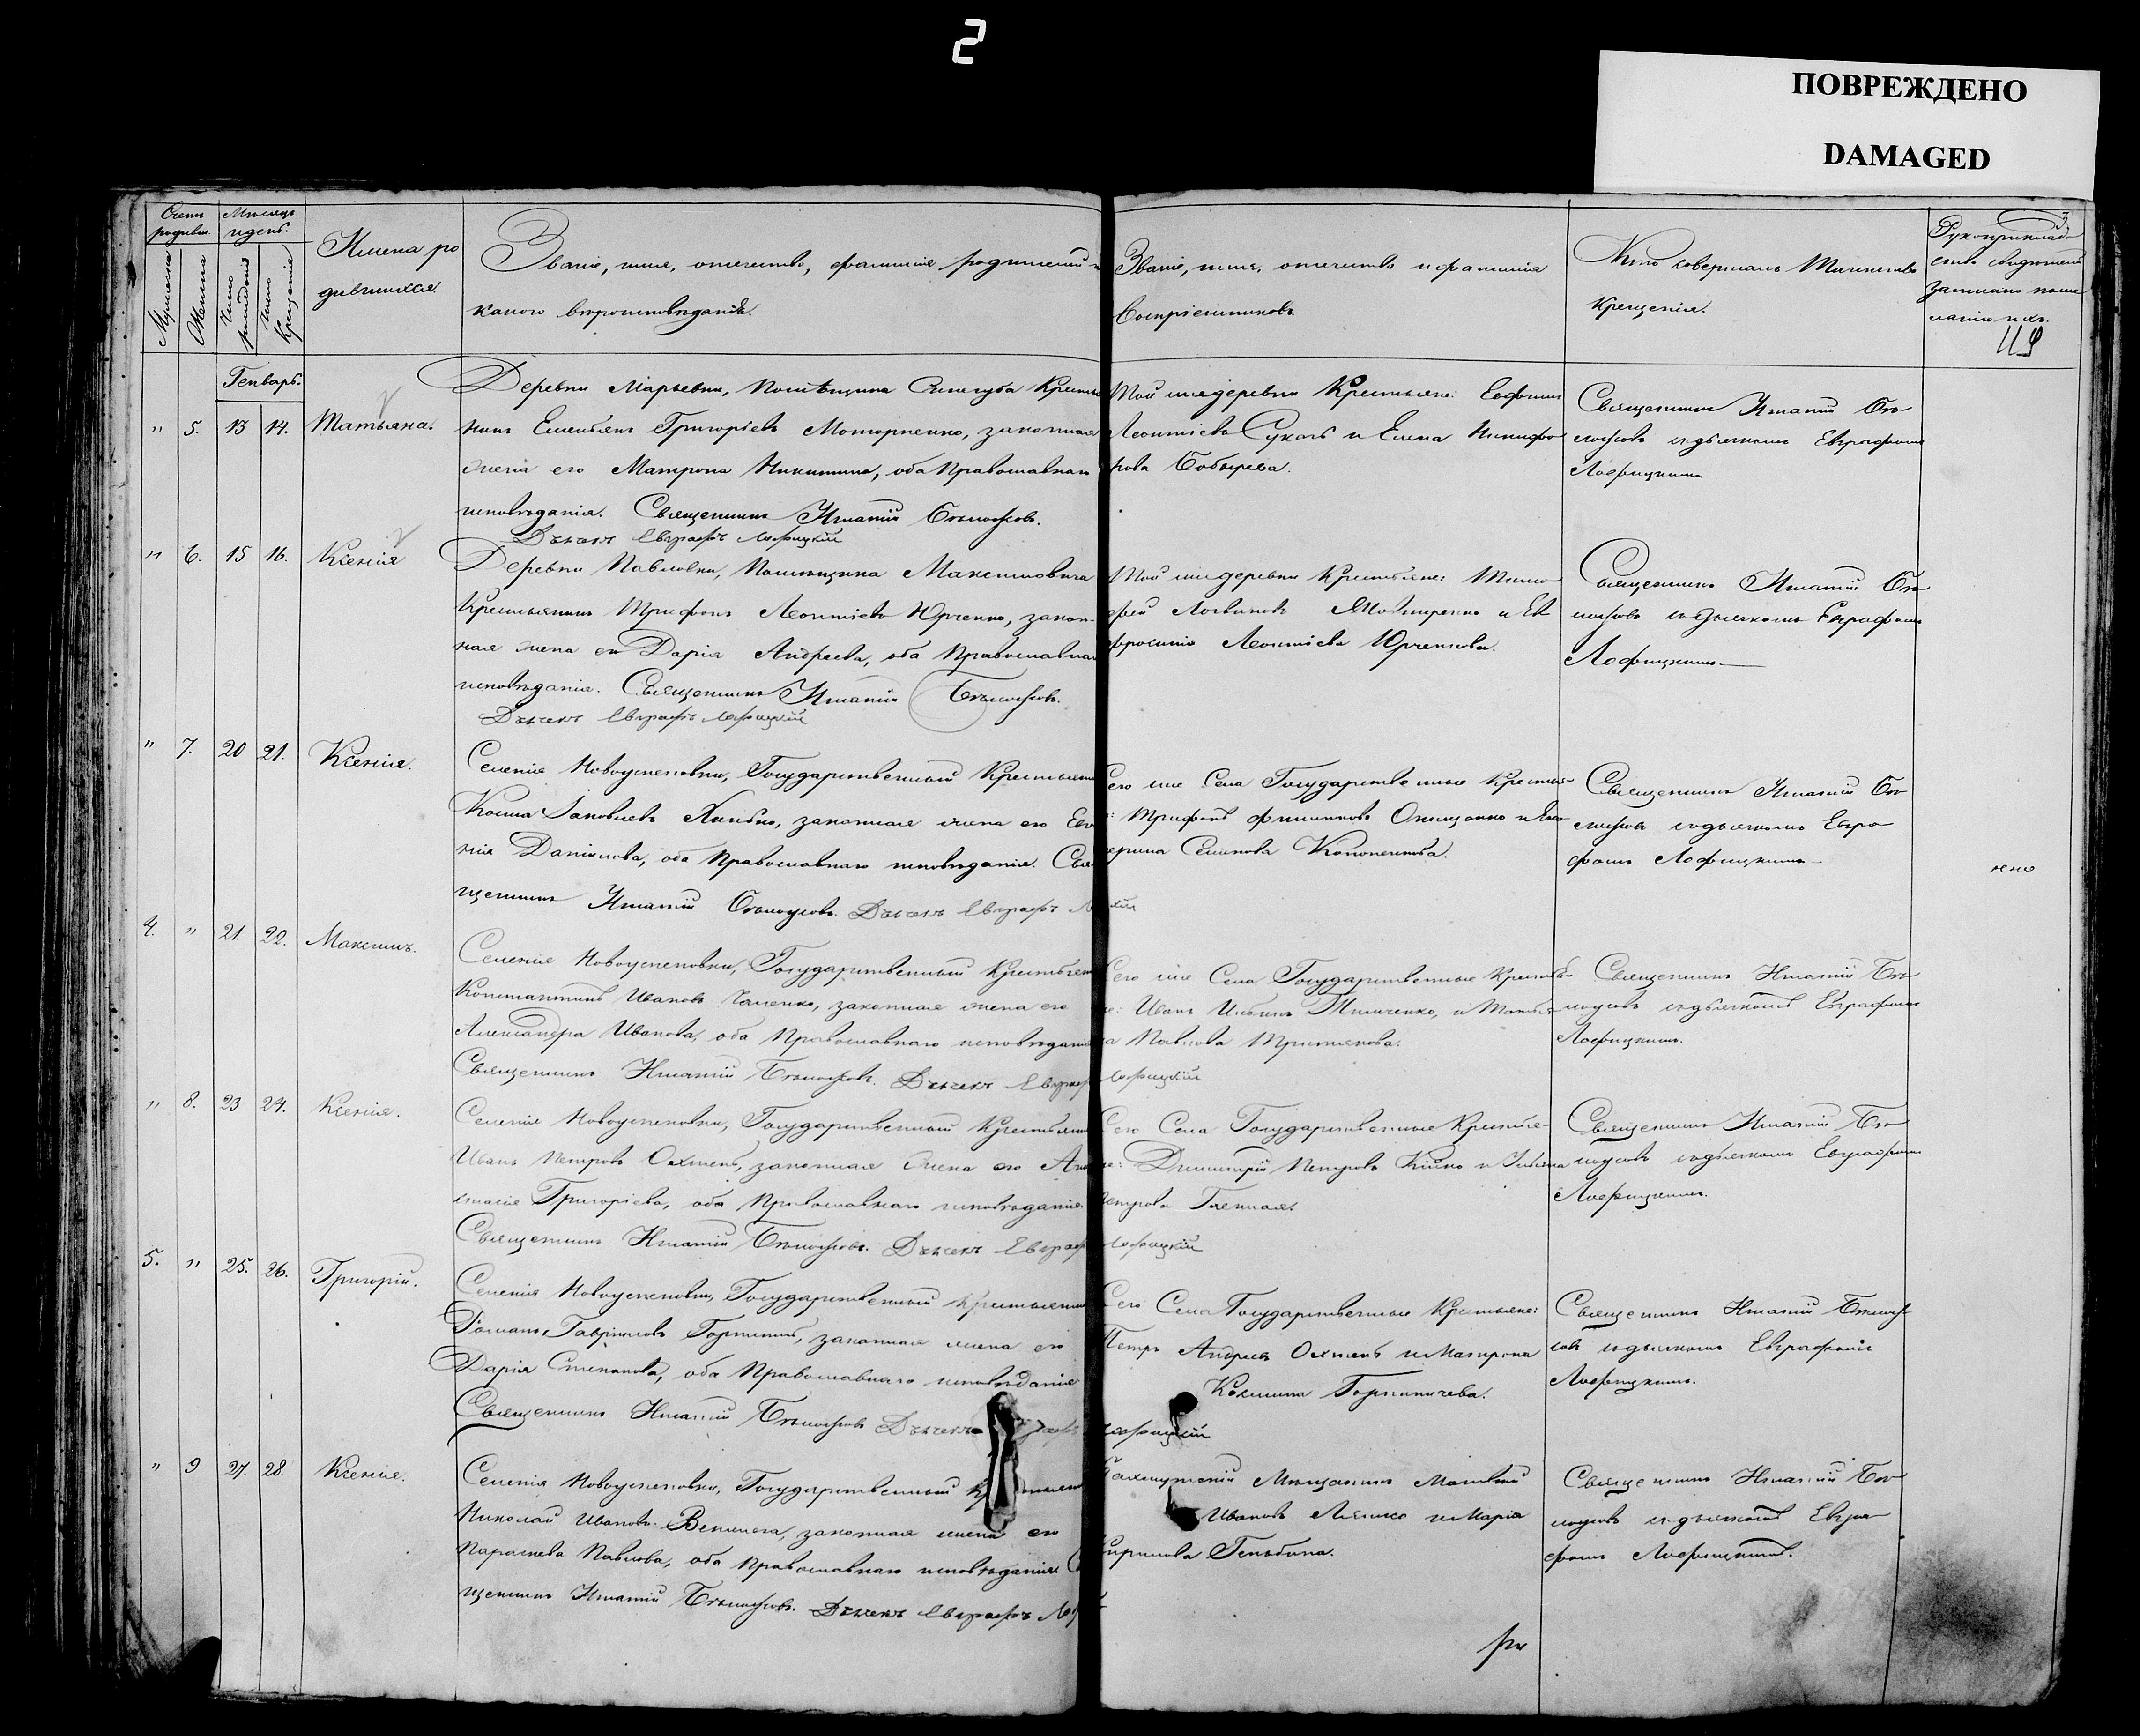 2
ПОВРЕЖДЕНО
DAMAGED
3
119
Счетъ родивш.
Мѣсяцъ и день.
Мужеска
Женска
Число рожденія
Число крещенія
Имена родившихся.
Званіе, имя, отчество, фамилія родителей и
какого вѣроисповѣданія.
Званіе, имя, отчество и фамилія
Воспріемниковъ
Кто совершалъ Таинство
крещенія.
Рукоприклад-
ство свидетелей
записано по же-
ланію ихъ.
Генварь.
" 5. 13 14. Татьяна.
Деревни Марьевки, Помѣщика Крестья
нинъ Емельянъ Григорьевъ законная
жена его Матрона Никитина, оба Православнаго
исповѣданія. Священникъ Игнатій Бѣлоусовъ.
Дьячекъ Евграфъ Лофицкій
Той же деревни Крестьяне: Евфимъ
Леонтіевъ Сукачъ и Елена Никифо
рова Бобырева.
Священникъ Игнатій Бѣ-
лоусовъ съ дьячкомъ Евграфомъ
Лофицкимъ
" 6. 15 16. Ксенія
Деревни Павловки, Помѣщика Максимовича
Крестьянинъ Трифонъ Леонтіевъ Юрченко, закон-
ная жена его Дарія Андреева, оба Православнаго
исповѣданія. Священникъ Игнатій Бѣлоусовъ.
Дьячекъ Евграфъ Лофицкій
Той же деревни Крестьяне: Тимо-
фей Логвиновъ и Ев
фросинія Леонтіева Юрченкова.
Священникъ Игнатій Бѣ
лоусовъ съ дьячкомъ Евграфомъ
Лофицкимъ
" 7. 20 21. Ксенія.
Селенія Новоуспеновки, Государственный Крестьянин
Косма Іаковлевъ законная жена его Евг
нія Даніилова, оба Православнаго исповѣданія. Свя
щенникъ Игнатій Бѣлоусовъ. Дьячекъ Евграфъ
Сего же Села Государственные крестья-
не: Трифонъ Филиповъ Онищенко и Ека
терина Семенова Кононенкова.
Священникъ Игнатій Бѣ
лоусовъ съ дьячкомъ Евгра
фомъ Лофицкимъ
4. " 21. 22. Максимъ.
Селенія Новоуспеновки, Государственный Крестьянин
Константинъ Ивановъ законная жена его
Александра Иванова, оба Православнаго исповѣданія
Священникъ Игнатій Бѣлоусовъ. Дьячекъ Евграфъ Лофицкій
Сего же Села Государственные Крестья-
не: Иванъ Ильинъ и Татья
на Павлова Третьякова.
Священникъ Игнатій Бѣ
лоусовъ съ дьячкомъ Евграфомъ
Лофицкимъ.
" 8. 23 24. Ксенія.
Селенія Новоуспеновки, Государственный Крестьянин
Иванъ Петровъ Охтень, законная жена его Ана
стасія Григорьева, оба Православнаго исповѣданія.
Священникъ Игнатій Бѣлоусовъ. Дьячекъ Евграфъ Лофицкій
Сего Села Государственные Крестья-
не: Димитрій Петровъ Кійко и Ульяна
Петрова
Священникъ Игнатій Бѣ
лоусовъ съ дьячкомъ Евграфомъ
Лофицкимъ.
5. " 25. 26. Григорій.
Селенія Новоуспеновки, Государственный Крестьянин
Романъ Гавриловъ законная жена его
Дарія Степанова, оба Православнаго исповѣданія
Священникъ Игнатій Бѣлоусовъ Дьячекъ Лофицкій
Сего Села Государственные Крестьяне:
Петръ Андреевъ Охтень и Матрона
Косьмина
Священникъ Игнатій Бѣлоус
овъ съ дьячкомъ Евграфомъ
Лофицкимъ.
" 9 27. 28. Ксенія.
Селенія Новоуспеновки, Государственный
Николай Ивановъ законная жена его
Параскева Павлова, оба Православнаго исповѣданія
щенникъ Игнатій Бѣлоусовъ. Дьячекъ Евграфъ
Бахмутскій Мѣщанинъ Матвѣй
Ивановъ Ляшко и Марія
Кирилова
Священникъ Игнатій Бѣ
лоусовъ съ дьячкомъ Евгра
фомъ Лофицкимъ.